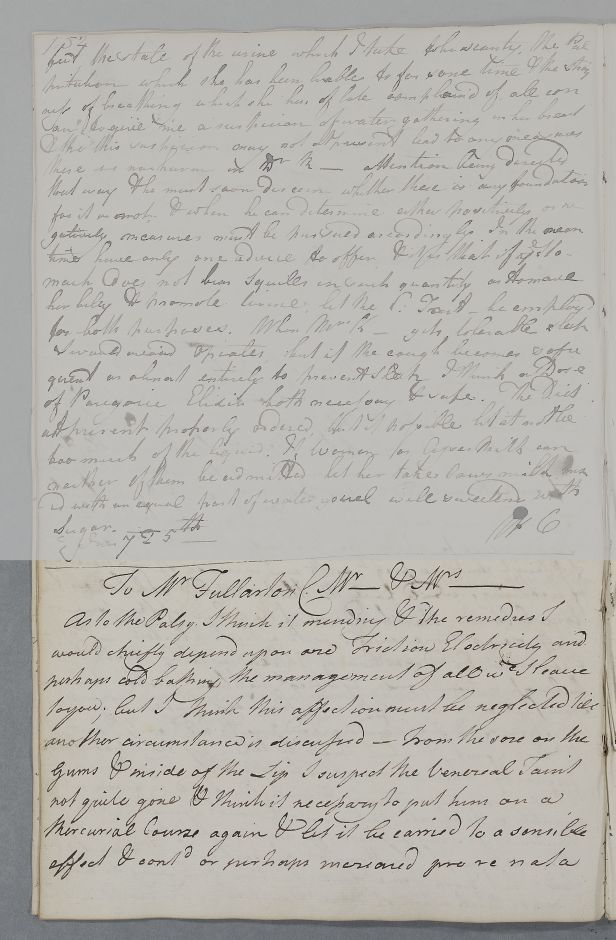 154
but the state of the urine which I take to be scanty, the Pal
pitation which she has been liable to for some time & the Strait
ness of breathing which she has of late complained of all con
to give me a suspicion of water gathering in her breast
& tho this suspicion may not at present lead to any measures
there is no harm in Dr — attention being directed
that way & he must soon discern whether there is any foundation
for it or not & when he can determine either positively or ne
gatively measures must be pursued accordingly. In the mean
time have only one advice to offer & it is that if her Sto-
mach does not bear Squills in such quantity as to move
her belly & promote urine, let the C. Tart. be employ'd
for both purposes. When Mrs — gets tolerable sleep
I would avoid Opiates, but if the cough becomes so fre
quent as almost entirely to prevent sleep I think a Dose
of Paregoric Elixir both necessary & safe. The Diet
at present properly ordered, but if possible let it not be
too much of the liquid. If Women or Asses Milk can
neither of them be admitted let her take Cows milk
ed with an equal part of water sweetened with
Sugar.
25th
W C
To Mr Fullarton C. Mr — & Mrs —
As to the Palsy I think it mending & the remedies I
would chiefly depend upon are Friction Electricity and
perhaps cold bathing, the management of all wc. I leave
to you, but I think this affection must be neglected till
another circumstance is discussed — From the sore on the
Gums & inside of the Lip I suspect the Venereal Taint
not quite gone & think it necessary to put him on a
Mercurial Course again & let it be carried to a sensible
effect & contd. or perhaps increased pro re nata